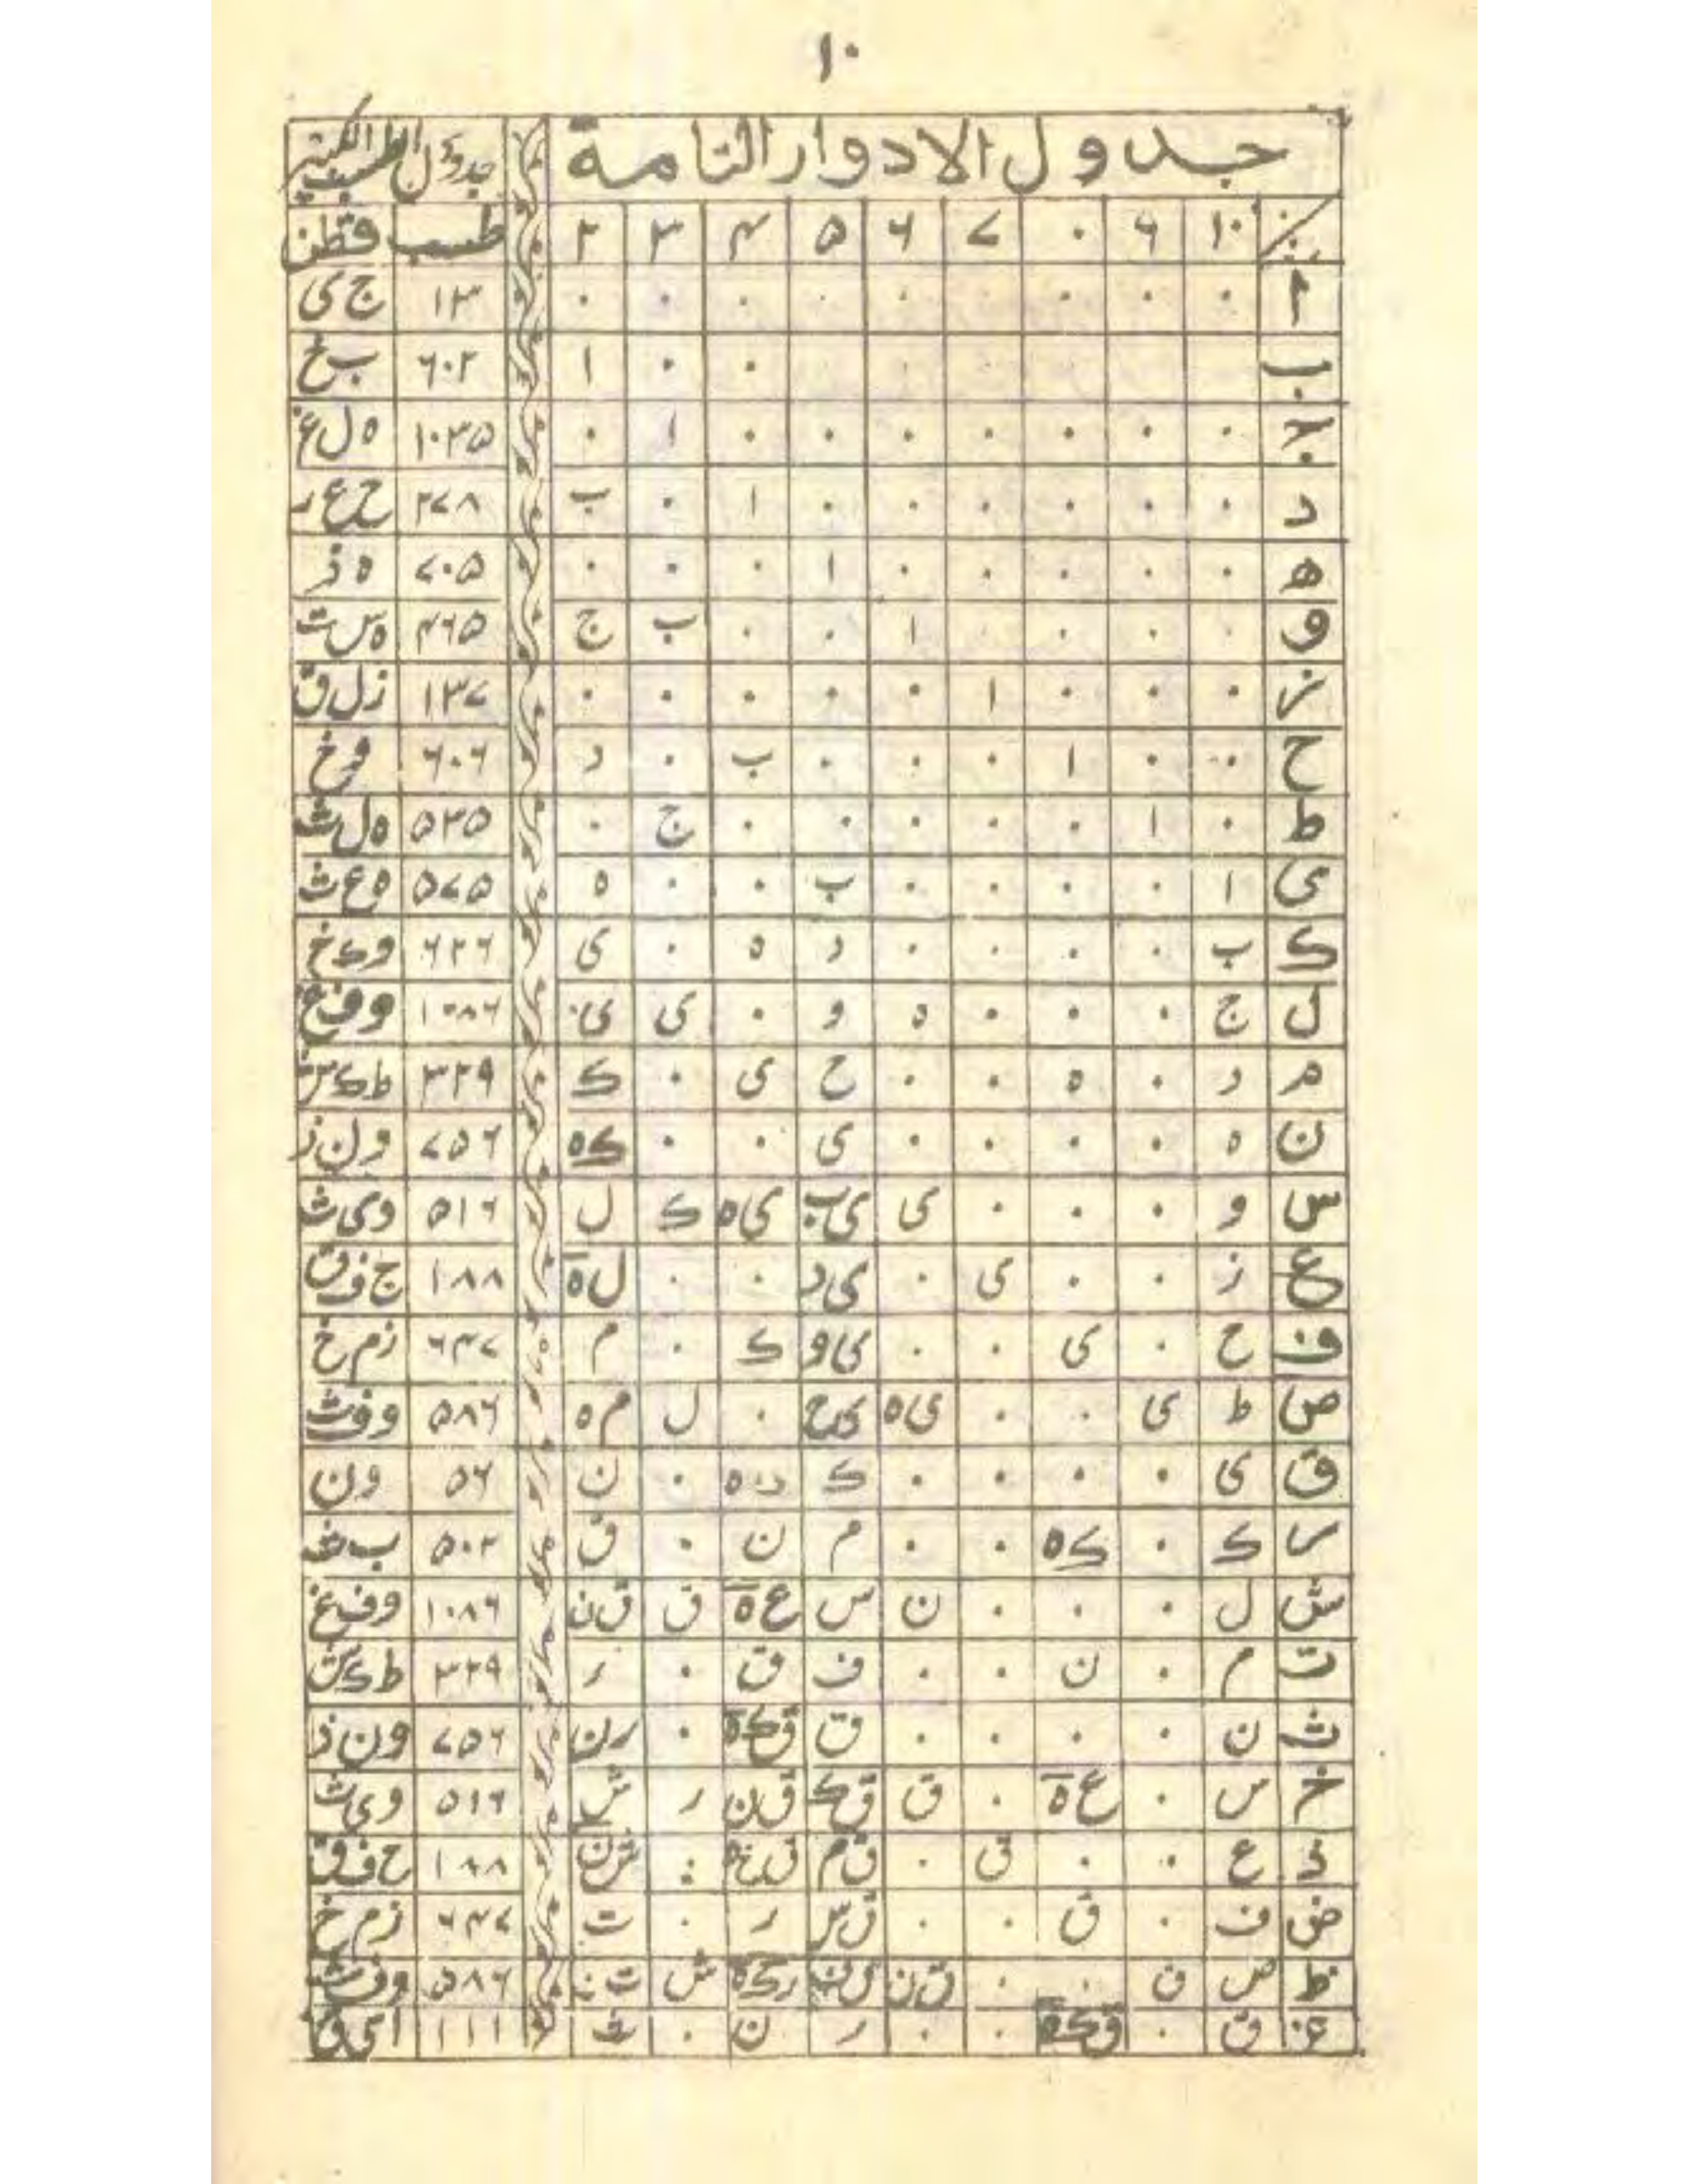 ١٠
جدول الادوار التامة جدول الطسب الكبير
١٠ ٩ ٠ ٧ ٦ ٥ ٤ ٣ ٢ طسب قطن
أ ٠ ٠ ٠ ٠ ٠ ٠ ٠ ٠ ٠ ١٣ ج ى
ب ٠ ٠ ١ ٦٠٢ ب خ
ج ٠ ٠ ٠ ٠ ٠ ٠ ٠ ١ ٠ ١٠٣٥ ه ل غ
د ٠ ٠ ٠ ٠ ٠ ٠ ١ ٠ ب ٢٧٨ ح ع ر
ه ٠ ٠ ٠ ٠ ٠ ١ ٠ ٠ ٠ ٧٠٥ ه ذ
و ٠ ٠ ٠ ٠ ١ ٠ ٠ ب ج ٤٦٥ ه س ت
ز ٠ ٠ ٠ ١ ٠ ٠ ٠ ٠ ٠ ١٣٧ ز ل ق
ح ٠٠ ٠ ١ ٠ ٠ ٠ ب ٠ د ٦٠٦ و خ
ط ٠ ١ ٠ ٠ ٠ ٠ ٠ ج ٠ ٥٣٥ ه ل ث
ى ١ ٠ ٠ ٠ ٠ ب ٠ ٠ ه ٥٧٥ ه ع ث
ك ب ٠ ٠ ٠ ٠ د ه ٠ ى ٦٢٦ و ك خ
ل ج ٠ ٠ ٠ ه و ٠ ى ى ١٠٨٦ و ف غ
م د ٠ ه ٠ ٠ ح ى ٠ ك ٣٢٩ ط ك ش
ن ه ٠ ٠ ٠ ٠ ى ٠ ٠ ك ه ٧٥٦ و ن ذ
س و ٠ ٠ ٠ ى ى ب ى ه ك ل ٥١٦ و ى ث
ع ز ٠ ٠ ى ٠ ى د ٠ ٠ ل ه ١٨٨ ح ف ق
ف ح ٠ ى ٠ ٠ ى و ك ٠ م ٦٤٧ ز م خ
ص ط ى ٠ ٠ ى ه ى ح ٠ ل م ه ٥٨٦ و ف ث
ق ى ٠ ٠ ٠ ٠ ك ٠ ن ٥٦ و ن
ر ك ٠ ك ه ٠ ٠ م ن ٠ ق ٥٠٢ ب ث
ش ل ٠ ٠ ٠ ن س ع ه ق ق ن ١٠٨٦ و ف غ
ت م ٠ ن ٠ ٠ ف ق ٠ ر ٣٢٩ ط ك ش
ث ن ٠ ٠ ٠ ٠ ق ق ك ه ٠ ر ن ٧٥٦ و ن ذ
خ س ٠ ع ه ٠ ق ق ك ق ن ر ش ٥١٦ و ى ث
ذ ع ٠ ٠ ق ٠ ق م ش ن ١٨٨ ح ف ق
ض ف ٠ ق ٠ ٠ ق س ر ٠ ت ٦٤٧ ز م خ
ظ ص ق ٠ ٠ ق ن ر ك ه ش ت ن ٥٨٦ و ف ث
غ ق ٠ ق ك ه ٠ ٠ ر ن ٠ ث ١١١ ا ى ق